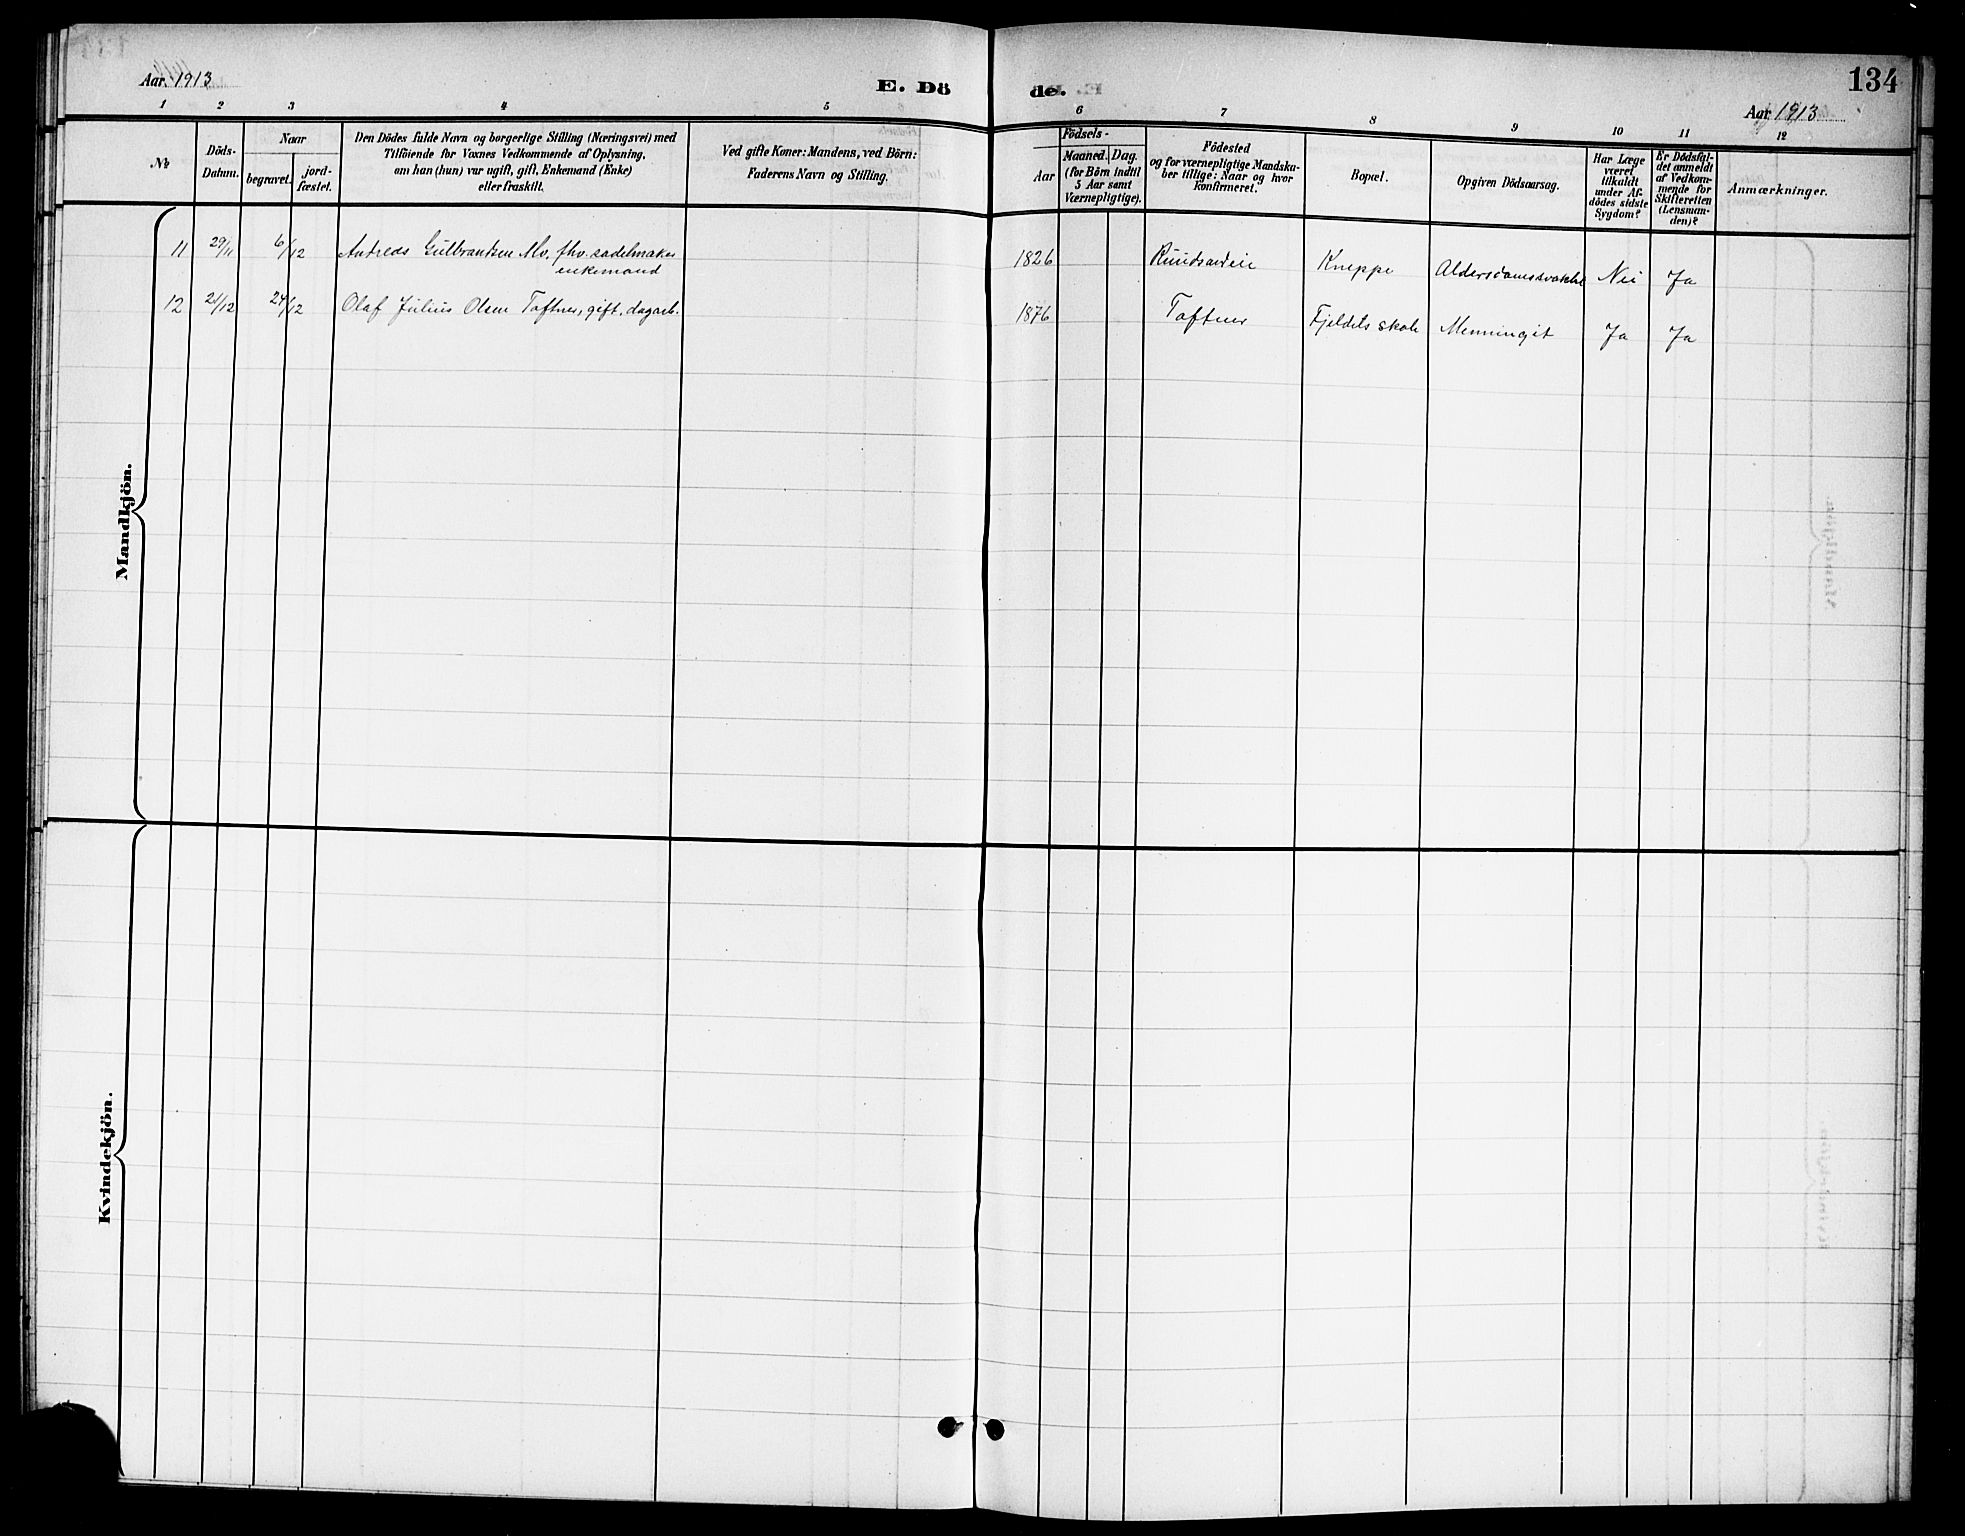 Aar. 1913
E. Dö
de.
134
Aar. 1913
1 2 3 4 5 6 7 8 9 10 11 12
No
Döds-
Datum.
Naar
begravet.
jord-
fæstet.
Den Dödes fulde Navn og borgerlige Stilling (Næringsvei) med
Tilföiende for Voxnes Vedkommende af Oplysning,
om han (hun) var ugift, gift, Enkemand (Enke)
eller fraskilt.
Ved gifte Koner: Mandens, ved Börn:
Faderens Navn og Stilling.
Födsels-
Aar
Maaned. Dag.
(for Börn indtil
5 Aar samt
Værnepligtige).
Födested
og for værnepligtige Mandska-
ber tillige: Naar og hvor
konfirmeret.
Bopæl.
Opgiven Dödsaarsag.
Har Læge
været
tilkaldt
under Af-
dödes sidste
Sygdom?
Er Dödsfal-
det anmeldt
af Vedkom-
mende for
Skifteretten
(Lensman-
den)?
Anmærkninger.
Mandkjön.
11 29/11 6/12 Andreas Gulbrandsen Mo, fhv. sadelmaker 1826 Kneppe Nei Ja
enkemand
12 21/12 24/12 Olaf Julius Olsen Toftner, gift, dagarb. 1876 Toftner Fjeldets skole Menningit Ja Ja
Kvindekjön.